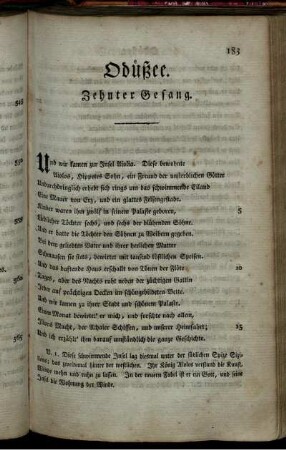 183
Odüßee.
Zehnter Gesang.
Und wir kamen zur Insel Aiolia. Diese bewohnte
Aiolos, Hippotes Sohn, ein Freund der unsterblichen Götter.
Undurchdringlich erhebt sich rings um das schwimmende Eiland
Eine Mauer von Erz, und ein glattes Felsengestade.
Kinder waren ihm zwölf in seinem Palaste geboren, 5
Lieblicher Töchter sechs, und sechs der blühenden Söhne.
Und er hatte die Töchter den Söhnen zu Weibern gegeben.
Bei dem geliebten Vater und ihrer herlichen Mutter
Schmausen sie stets, bewirtet mit tausend köstlichen Speisen.
Und das duftende Haus erschallt von Tönen der Flöte 10
Tages, aber des Nachts ruht neben der züchtigen Gattin
Jeder auf prächtigen Decken im schöngebildeten Bette.
Und wir kamen zu ihrer Stadt und schönem Palaste.
Einen Monat bewirtet' er mich, und forschte nach allem,
Ilions Macht, der Achaier Schiffen, und unserer Heimfahrt; 15
Und ich erzählt' ihm darauf umständlich die ganze Geschichte.
V. 1. Diese schwimmende Insel lag diesmal unter der südlichen Spize Sizi-
liens; das zweitemal hinter der westlichen. Ihr König Aiolos verstand die Kunst,
Winde wehen und ruhn zu lassen. In der innern Fabel ist er ein Gott, und seine
Insel die Wohnung der Winde.